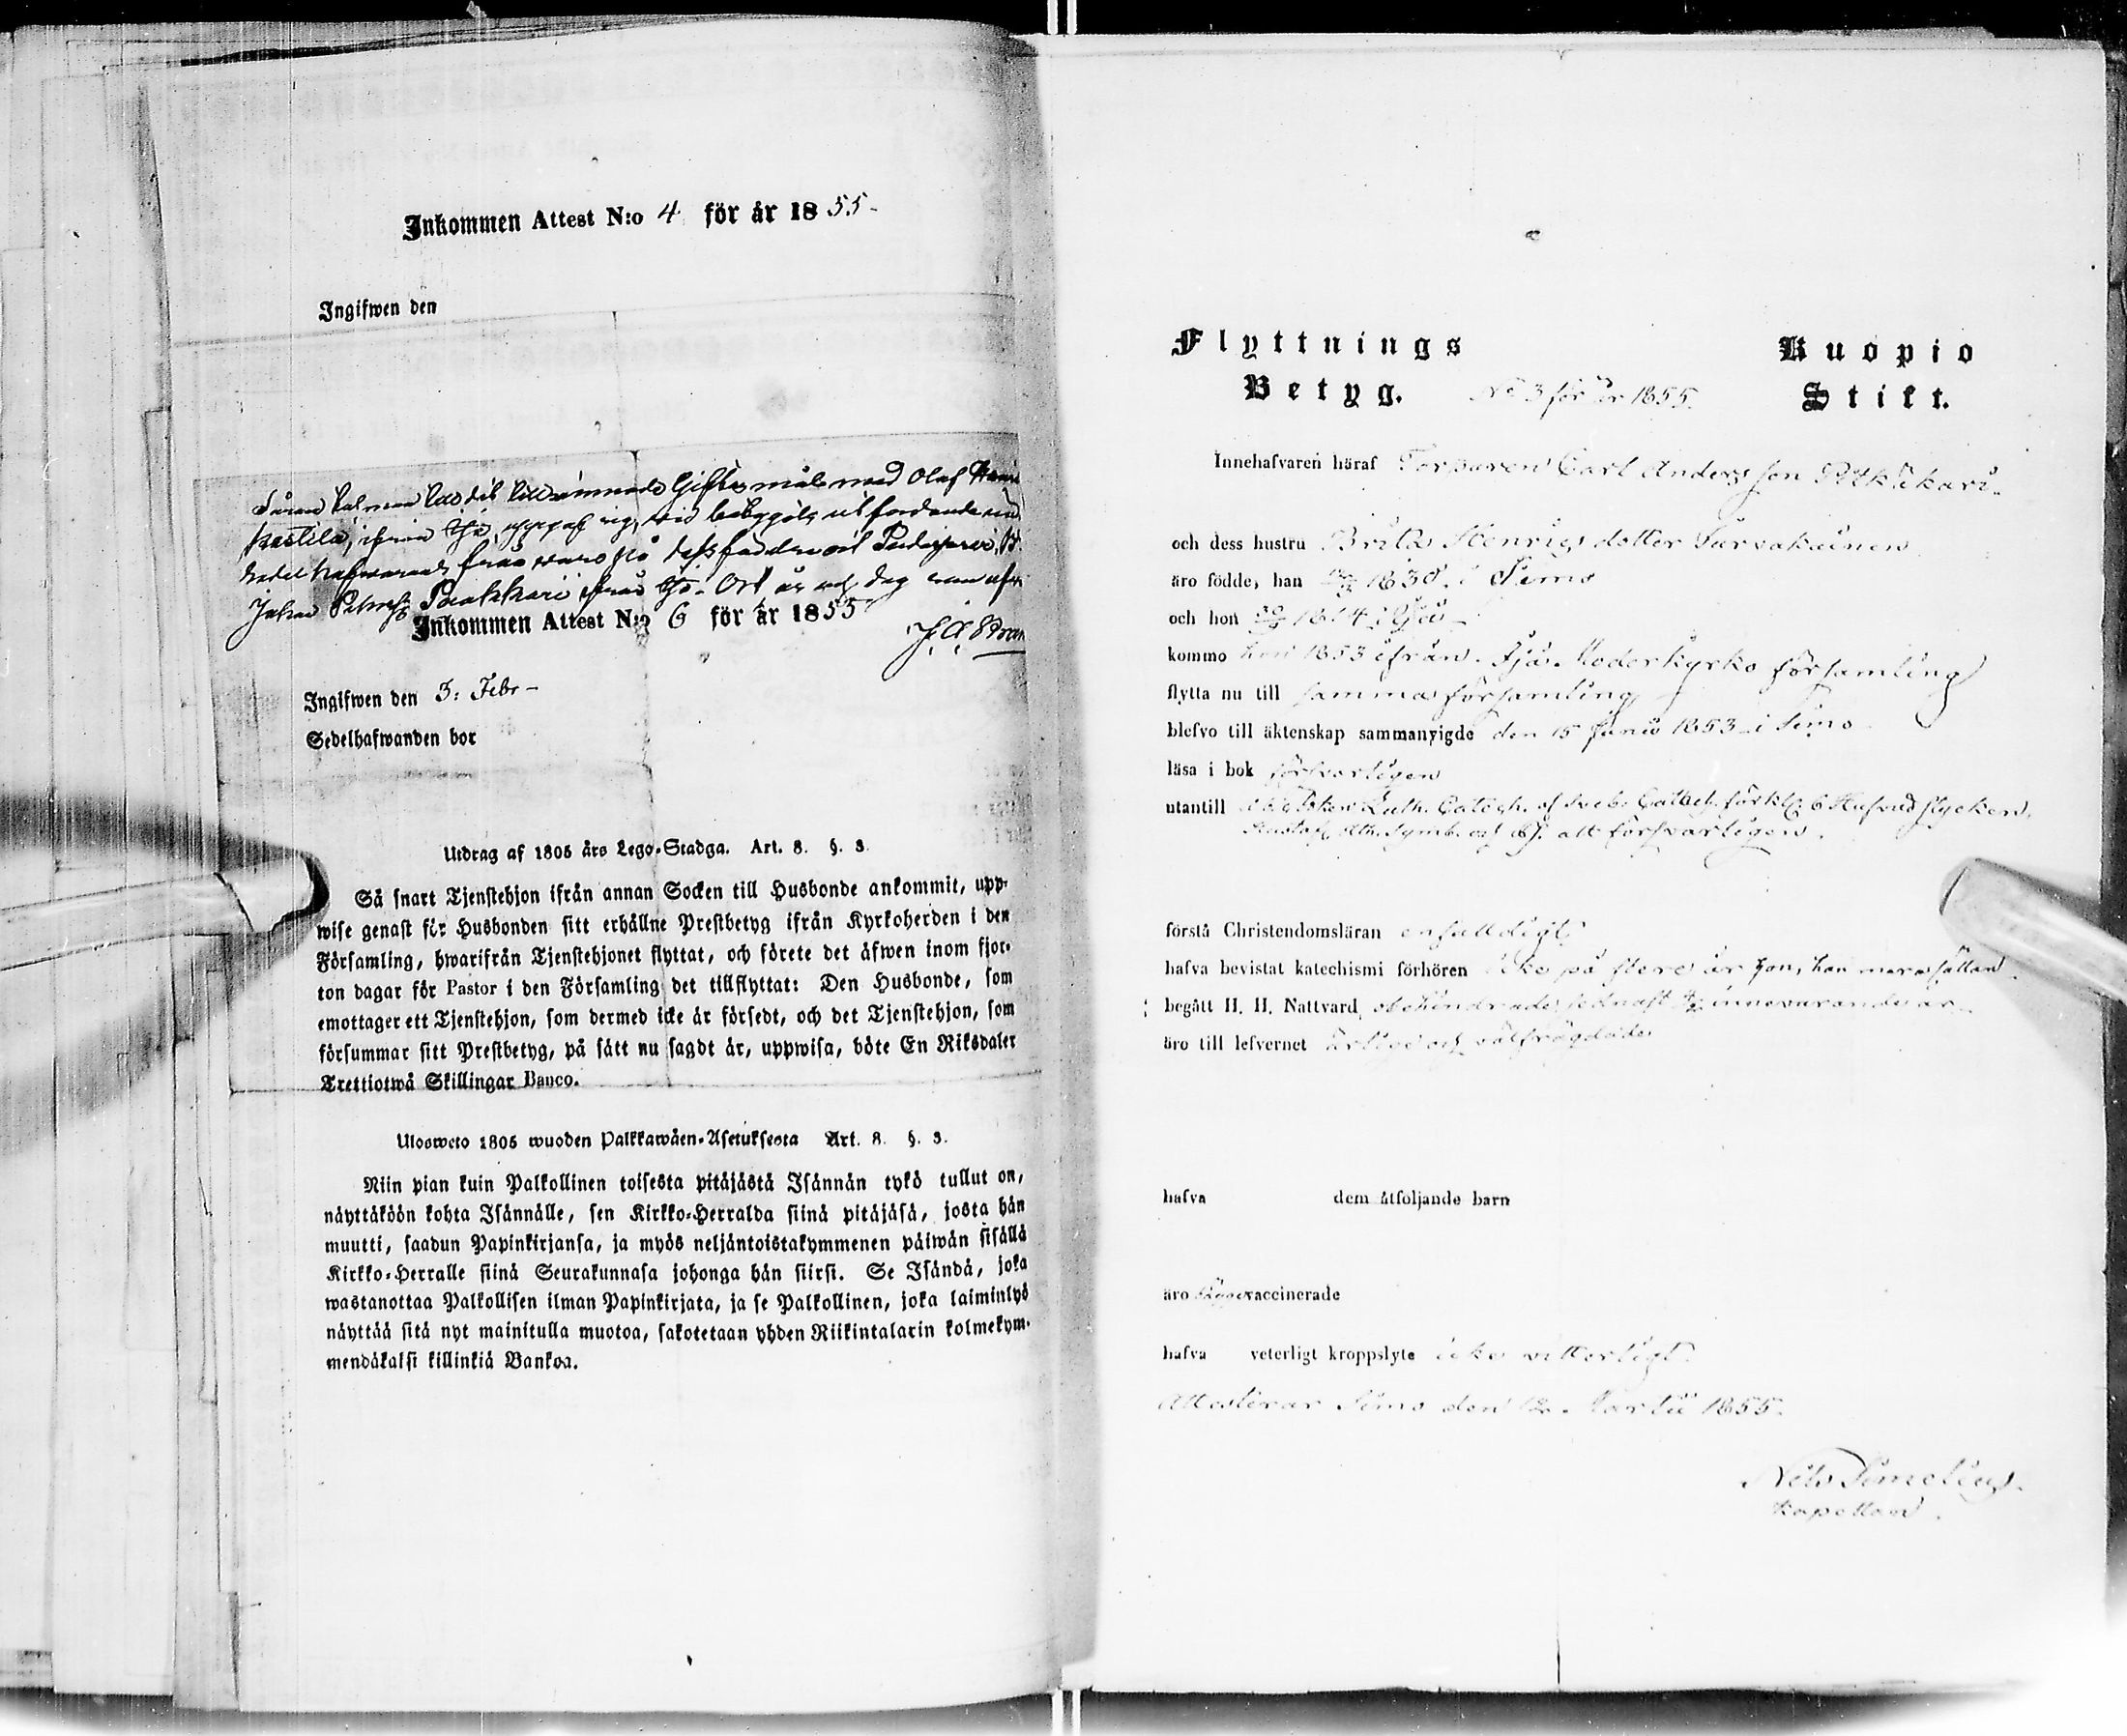 Inkommen Attest N:o 4 för år 1855-
Ingifwen den
Giftermål med Olof
Johan Petersson Paakkari ifrån Ijo. Ort, år och dag som ofvan
Inkommen Attest N:o 6 för år 1855
Ingifwen den 3: Febr-
Sedelhafwanden bor
Utdrag af 1805 års Lego-Stadga. Art. 8. §. 3.
Så snart Tjenstehjon ifrån annan Socken till Husbonde ankommit, upp-
wise genast för Husbonden sitt erhållne Prestbetyg ifrån Kyrkoherden i den
Församling, hwarifrån Tjenstehjonet flyttat, och förete det äfwen inom fjor-
ton dagar för Pastor i den Församling det tillflyttat: Den Husbonde, som
emottager ett Tjenstehjon, som dermed icke är försedt, och det Tjenstehjon, som
försummar sitt Prestbetyg, på sätt nu sagdt är, uppwisa, böte En Riksdaler
Trettiotwå Skillingar Banco.
Ulosweto 1805 wuoden Palkkawäen-Asetuksesta Art. 8. §. 3.
Niin pian kuin Palkollinen toisesta pitäjästä Isännän tykö tullut on,
näyttäköön kohta Isännälle, sen Kirkko-Herralda siinä pitäjäsä, josta hän
muutti, saadun Papinkirjansa, ja myös neljäntoistakymmenen päiwän sisällä
Kirkko-Herralle siinä Seurakunnasa johonga hän siirsi. Se Isändä, joka
wastanottaa Palkollisen ilman Papinkirjata, ja se Palkollinen, joka laiminlyö
näyttää sitä nyt mainitulla muotoa, sakotetaan yhden Riikintalarin kolmekym-
mendäkaksi killinkiä Bankoa.
Flyttnings Kuopio
Betyg. No 3 för år 1855. Stift.
Innehafvaren häraf Torparen Carl Andersson Pitkäkari
och dess hustru Brita Henrics dotter
äro födde, han 1830 i Simo
och hon 1814 i Ijo
kommo hon 1853 ifrån Ijo Moderkyrko församling
flytta nu till samma församling
blefvo till äktenskap sammanvigde den 15 Junii 1853 i Simo
läsa i bok försvarligen
utantill Luth. Catech. 6 Hufvudstycken
Athi. Symb. och allt försvarligen.
förstå Christendomsläran enfaldigt
hafva bevistat katechismi förhören icke på flere år hon, han mera sällan
begått H. H. Nattvard obehindrade sednast innevarande år
äro till lefvernet ärlige och välfrägdade
hafva dem åtföljande barn
äro vaccinerade
hafva veterligt kroppslyte icke vitterligt.
Attesterar Simo den 12 Martii 1855.
Nils Simelius.
Kapellan.